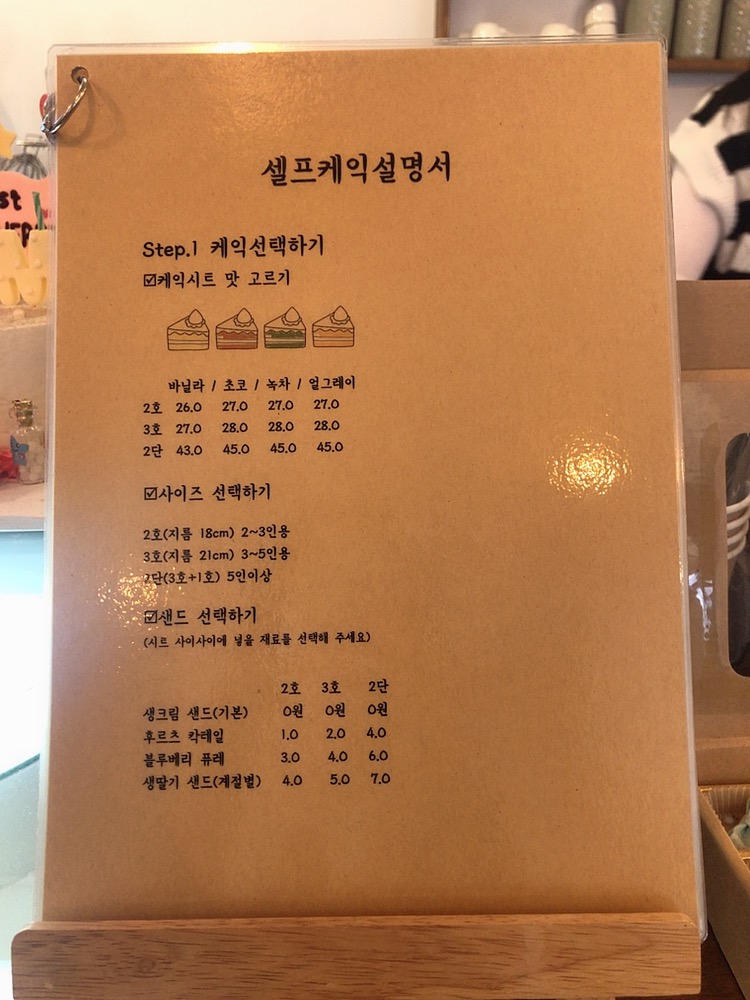 셀프케익설명서
Step.1 케익선택하기
☑케익시트 맛 고르기
바닐라 / 초코 / 녹차 / 얼그레이
2호 26.0 27.0 27.0 27.0
3호 27.0 28.0 28.0 28.0
2단 43.0 45.0 45.0 45.0
☑사이즈 선택하기
2호(지름 18cm) 2~3인용
3호(지름 21cm) 3~5인용
2단(3호+1호) 5인이상
☑샌드 선택하기
(시트 사이사이에 넣을 재료를 선택해 주세요)
2호 3호 2단
생크림 샌드(기본) 0원 0원 0원
후르츠 칵테일 1.0 2.0 4.0
블루베리 퓨레 3.0 4.0 6.0
생딸기 샌드(계절별) 4.0 5.0 7.0